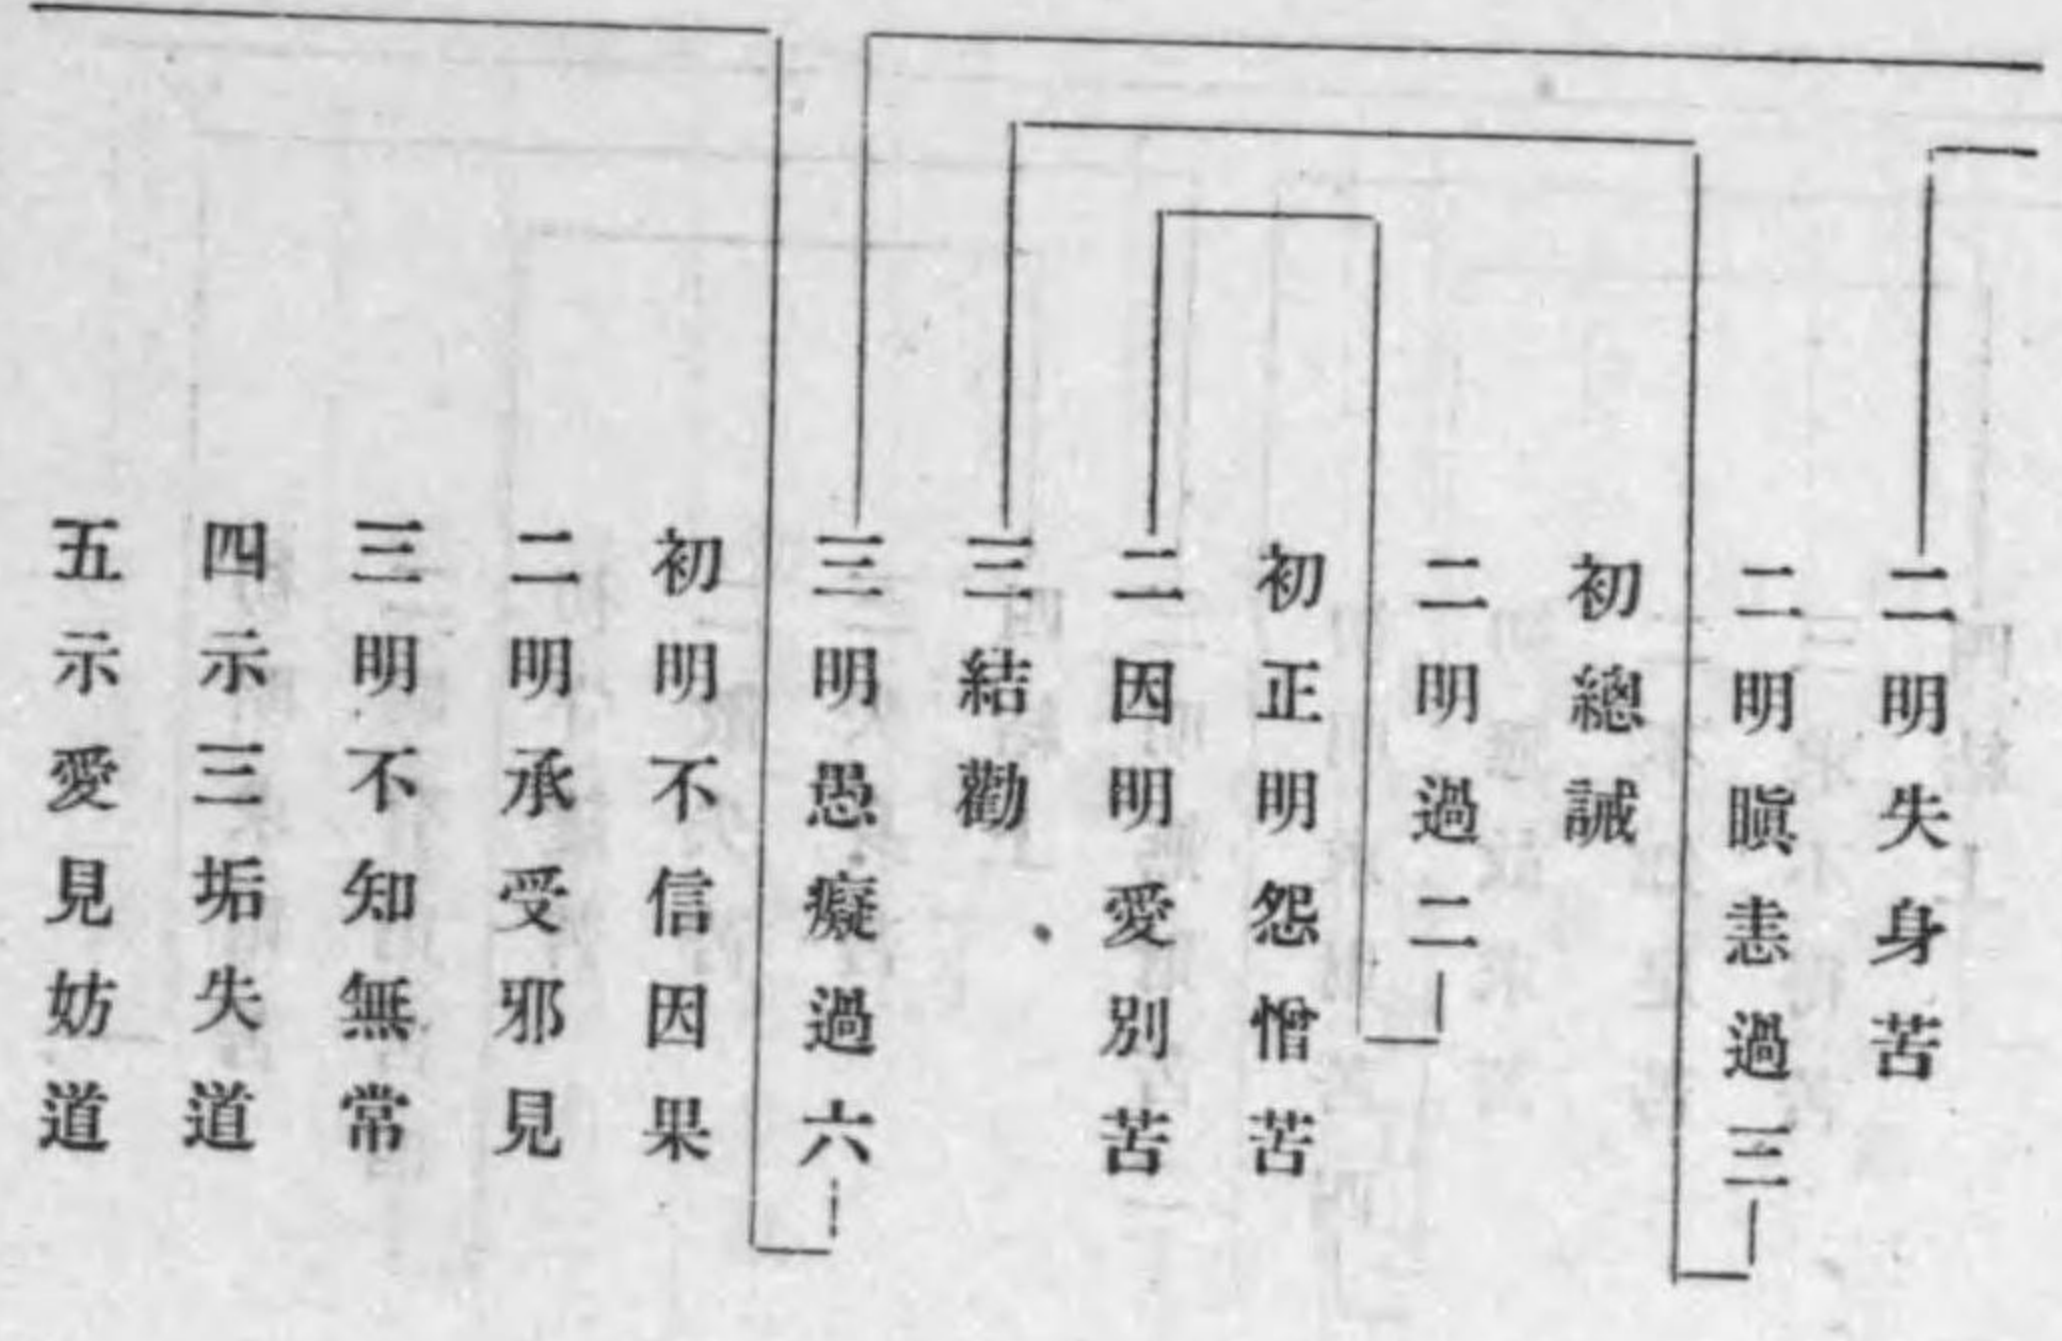 二明失身苦
二明瞋恚過三
初總誡
二明過二
初正明怨憎苦
二因明愛別苦
三結勸
三明愚癡過六
初明不信因果
二明承受邪見
三明不知無常
四示三垢失道
五示愛見妨道